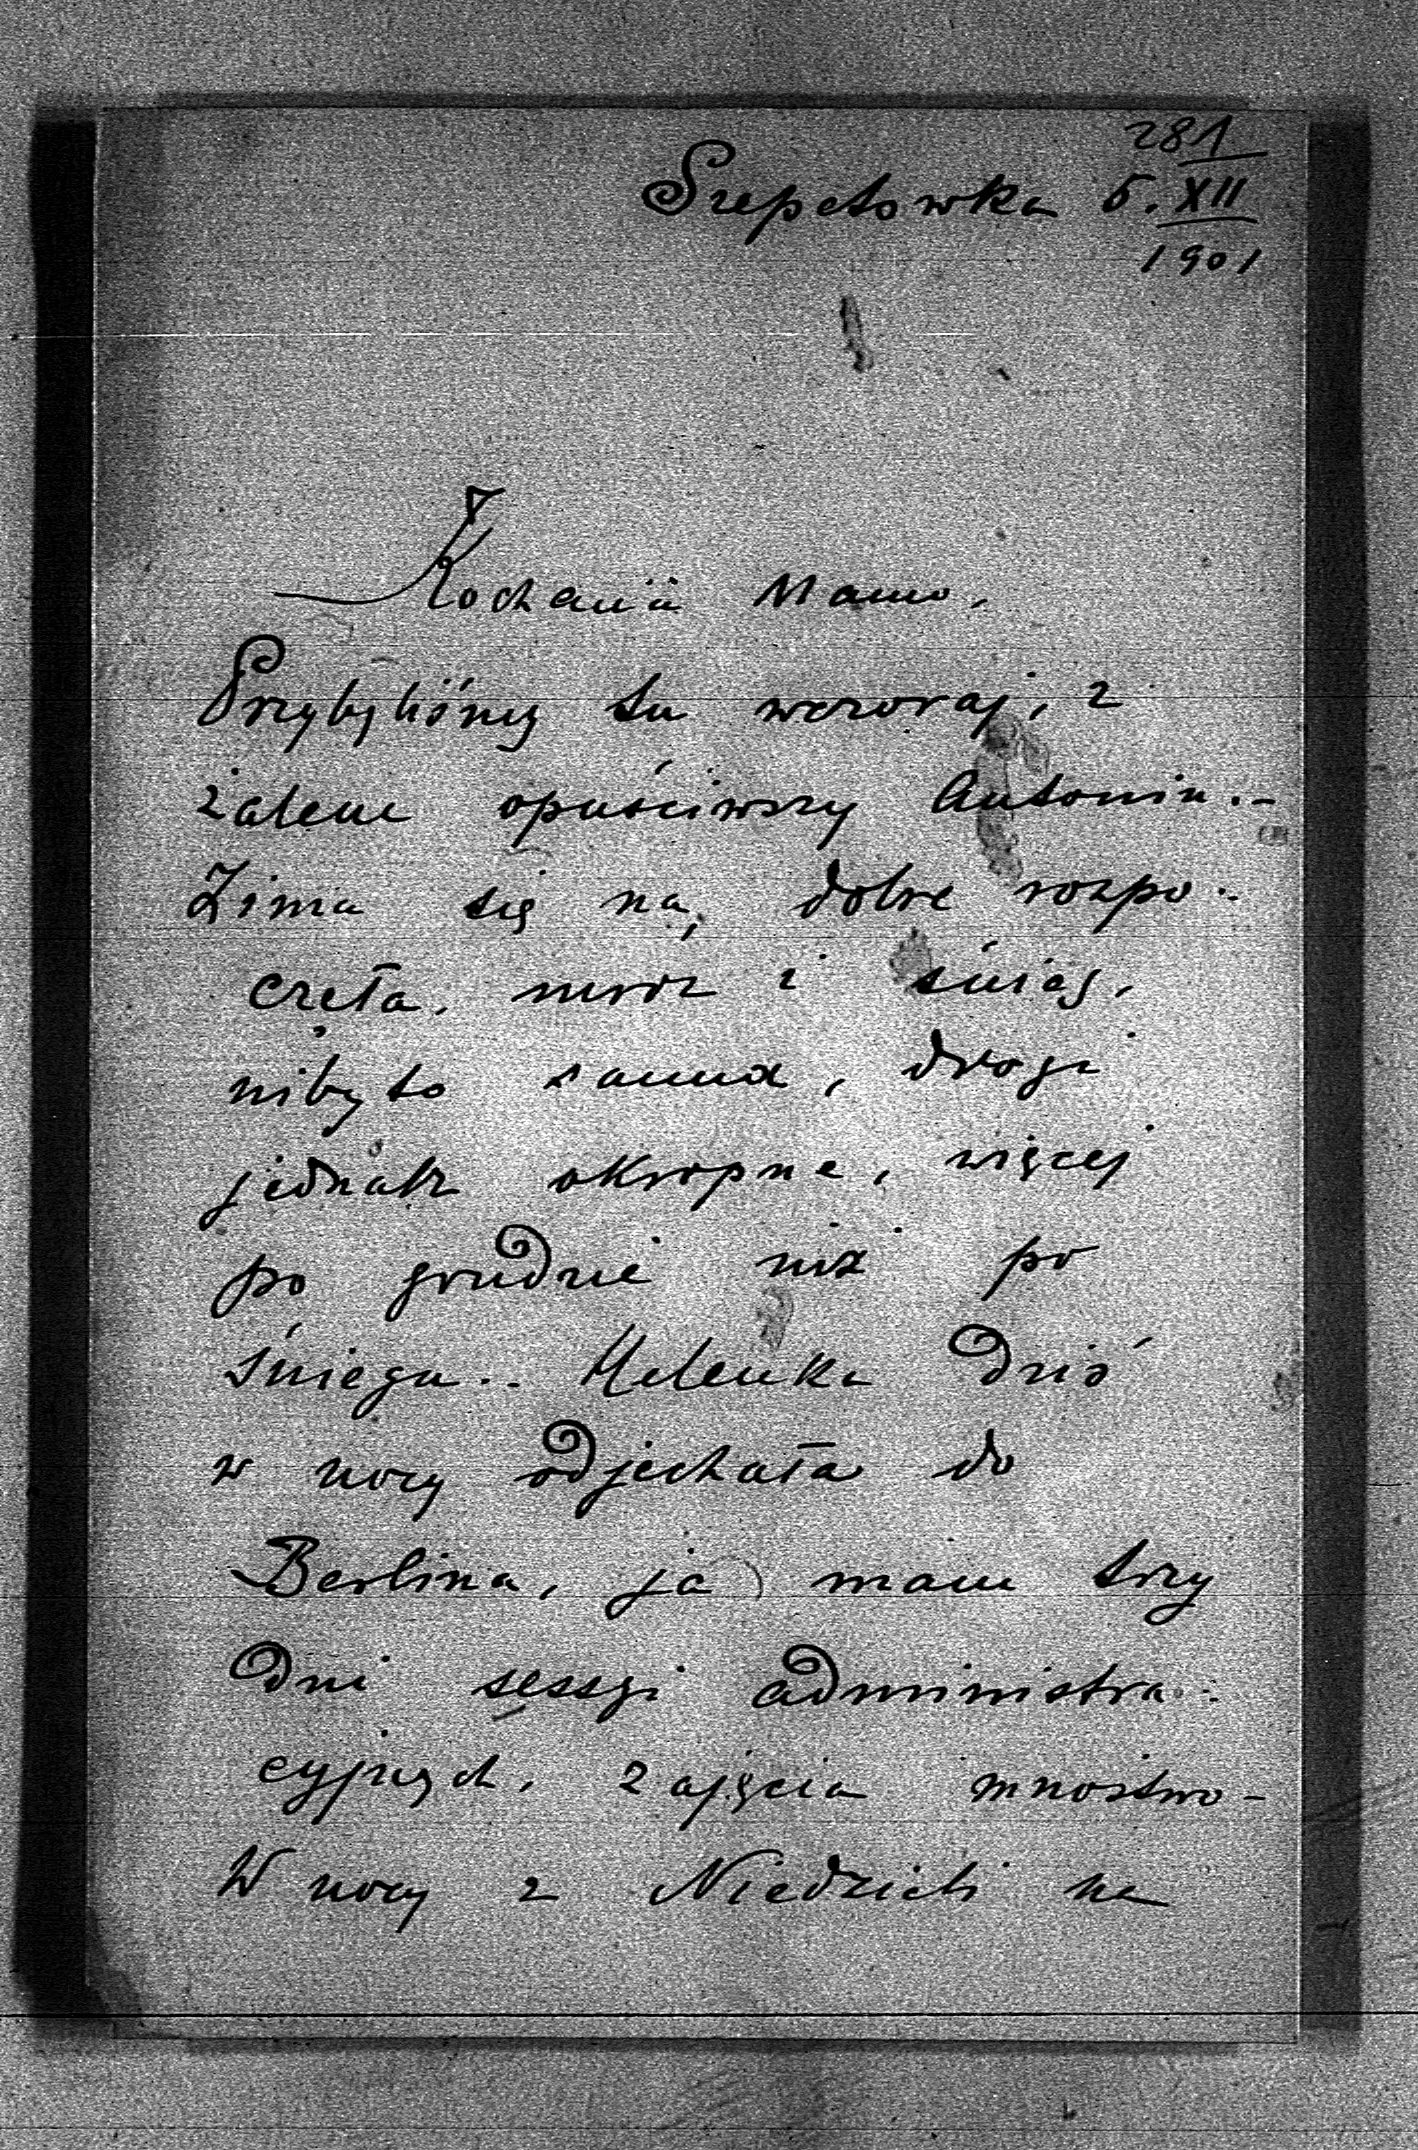 281
Szepetowka 5. XII
1901
Kochana Mamo,
Przybyliśmy tu wczoraj, z
żalem opuściwszy Antonin.-
Zima się na dobre rozpo-
częła, mroz i śnieg,
nibyto sanna, drogi
jednak okropne, więcej
po grudzie niż po
śniegu.. Helenka Dziś
w nocy odjechała do
Berlina, ja mam trzy
Dni sessyi administra-
cyjnych, zajęcia mnostwo-
W nocy z Niedzieli na